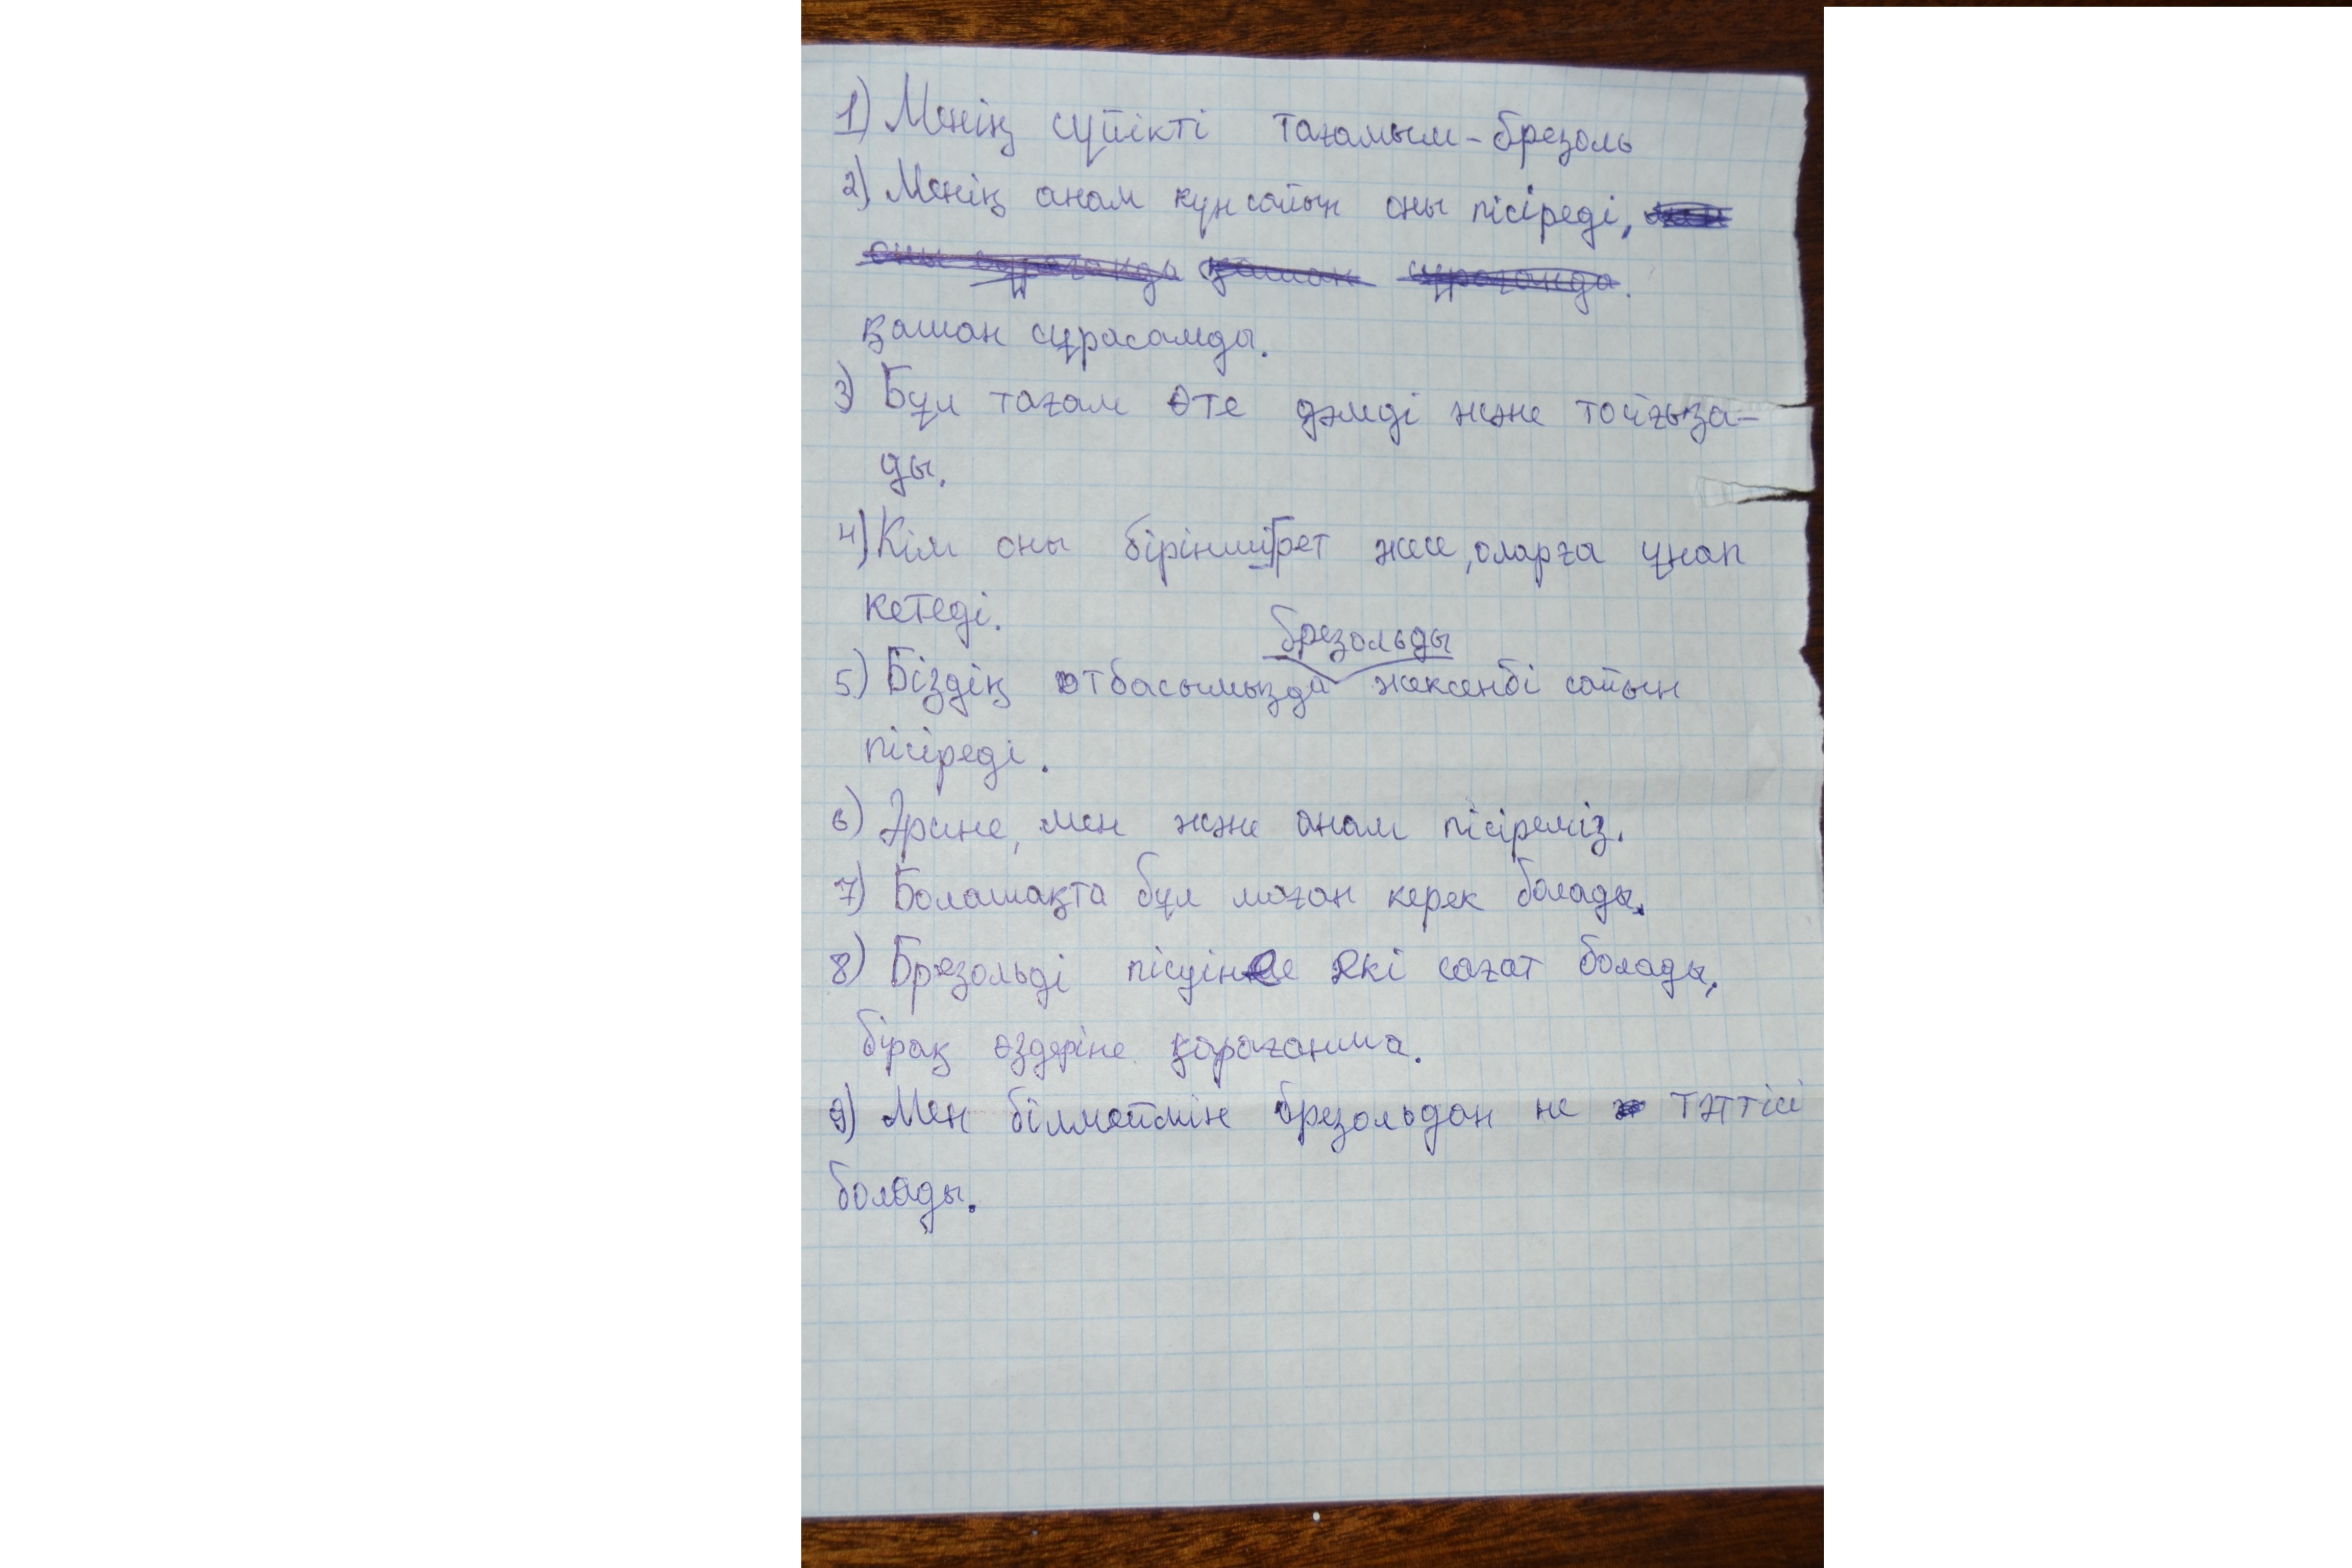 1) Менің сүйікті тағамым - брезоль
2) Менің анам күн сайын оны пісіреді,
оны сұрағанда қашан сұрағанда.
қашан сұрасамды.
3) Бұл тағам өте дәмді және тойғыза-
ды.
4) Кім оны бірінші рет жесе, оларға ұнап
кетеді.
брезольды
5) Біздің отбасымызда жексенбі сайын
пісіреді.
6) Әрине, мен және анам пісіреміз.
7) Болашақта бұл маған керек болады.
8) Брезольді пісуіне екі сағат болады,
бірақ өздеріне қарағанша.
9) Мен білмеймін брезольдан не тәттісі
болады.